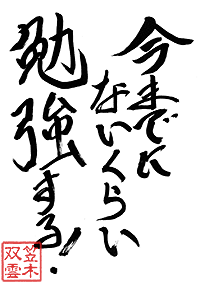 今までに
ないくらい
勉強する!
笠木
双雲